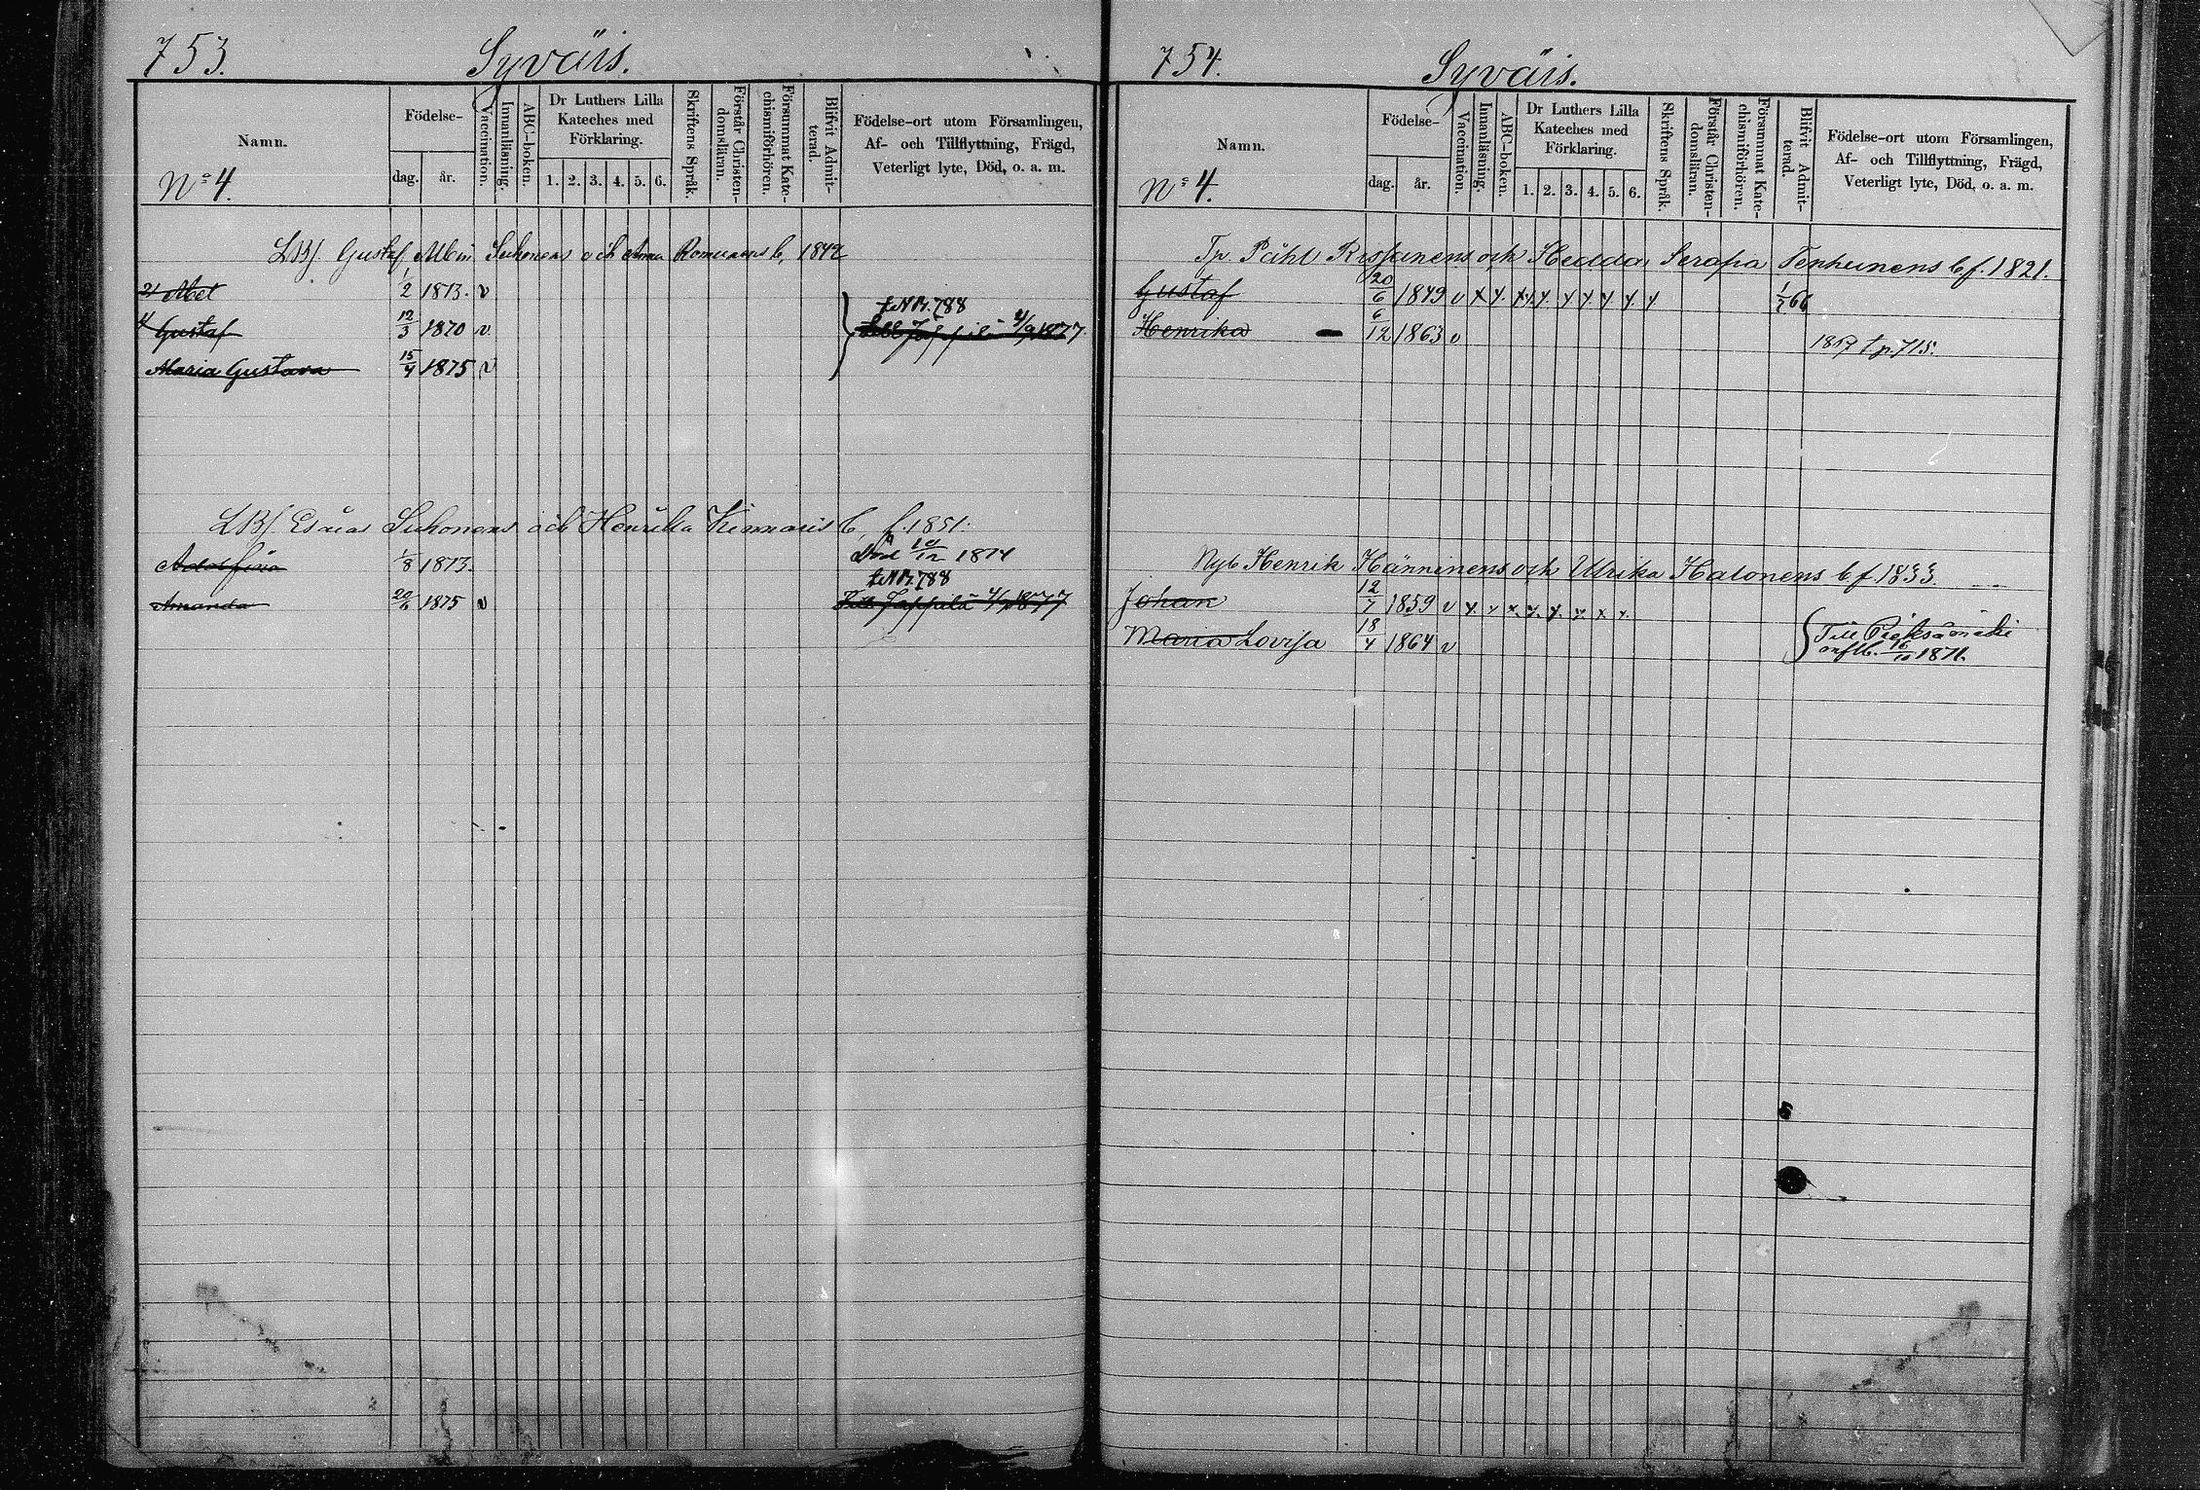 753. Syväis.
Namn. Födelse- dag. år. Vaccination. Innanläsning. ABC-boken. Dr Luthers Lilla Kateches med Förklaring. 1. 2. 3. 4. 5. 6. Skriftens Språk. Förstår Christen-domsläran. Försummat Kate-chismiförhören. Blifvit Admit-terad. Födelse-ort utom Församlingen, Af- och Tillflyttning, Frägd, Veterligt lyte, Död, o. a. m.
No 4.
LBf. Gustaf Albin Suhonens och Anna Romunens b, 1842
Abel 1/2 1873. v
Gustaf 12/3 1870 v
t.NB.788
Till Jäppilä 4/9 1877
Maria Gustava 15/4 1875 v
LBf. Esaias Suhonens och Henrika Kinnaris b, f. 1851.
Adolfina 1/8 1873. Död 10/12 1874
t.NB.788
Amanda 20/6 1875 v Till Jäppilä 4/9 1877
754. Syväis.
Namn. Födelse- dag. år. Vaccination. Innanläsning. ABC-boken. Dr Luthers Lilla Kateches med Förklaring. 1. 2. 3. 4. 5. 6. Skriftens Språk. Förstår Christen-domsläran. Försummat Kate-chismiförhören. Blifvit Admit-terad. Födelse-ort utom Församlingen, Af- och Tillflyttning, Frägd, Veterligt lyte, Död, o. a. m.
No 4.
Tp. Påhl Rissanens och Hedda Serafia Tenhunens b f. 1821.
Gustaf 20/6 1849 v x x x x x x x x x 1/7 66
Henrika 6/12 1863 v
1867 t p. 715.
Nyb Henrik Hänninens och Ulrika Halonens b f. 1833.
Johan 12/7 1859 v x x x x x x x x
Maria Lovisa 18/4 1864 v
Till Pieksämäki
enfl. 16/10 1871.